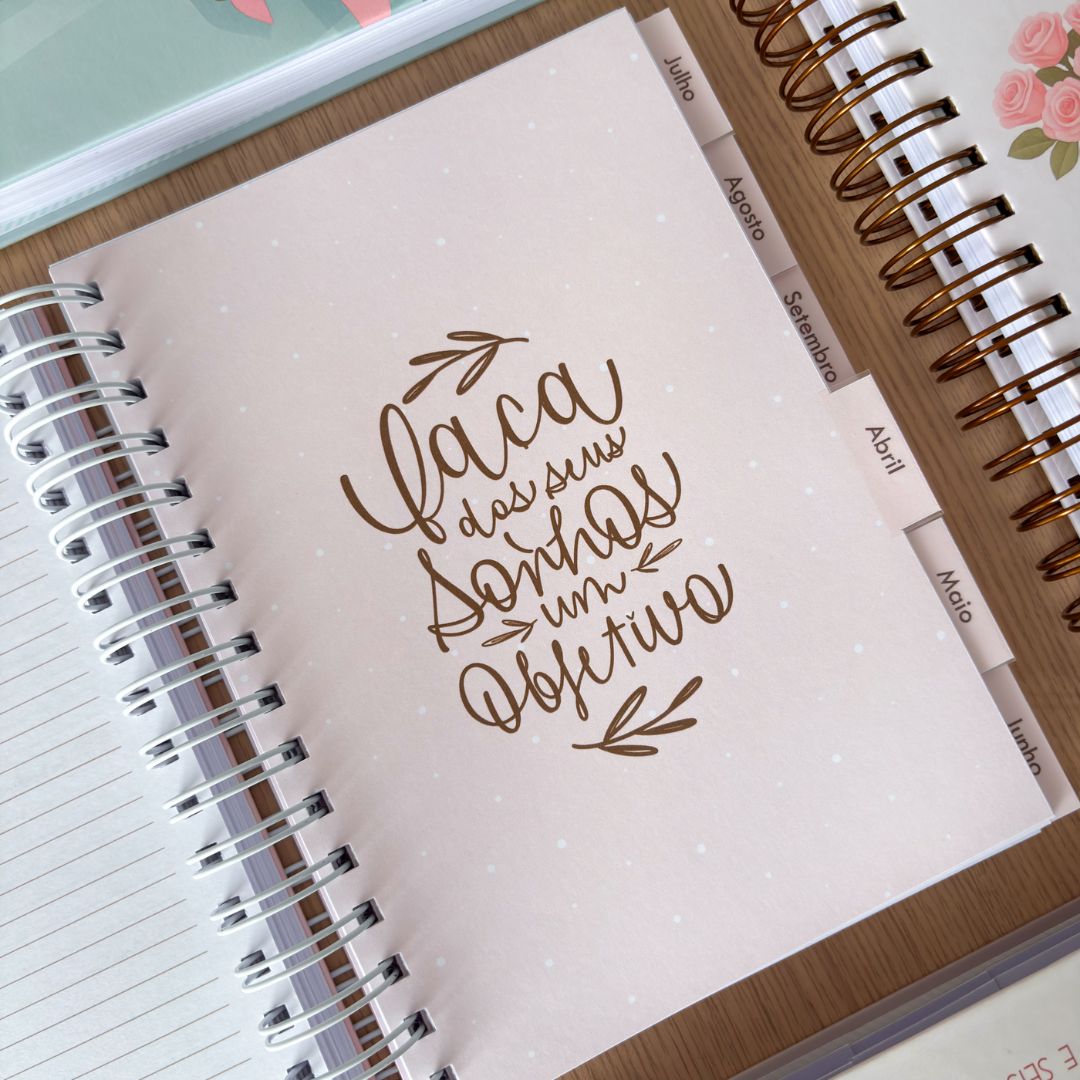 Faça
dos seus
sonhos
um
objetivo
Julho
Agosto
Setembro
Abril
Maio
Junho